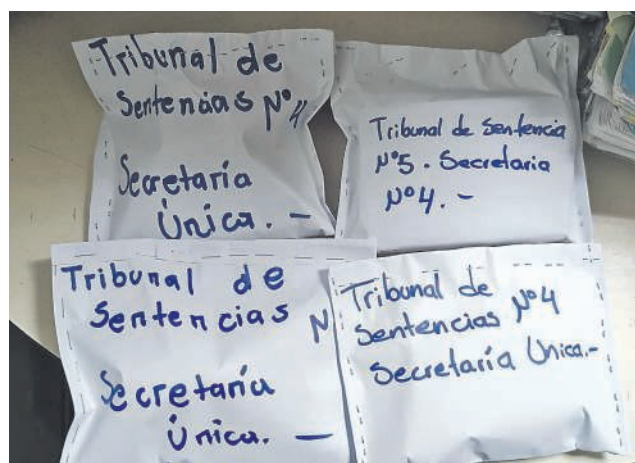 Tribunal de
Sentencias Nº 4
Secretaría
Única. –
Tribunal de Sentencia
Nº5. Secretaria
Nº4. –
Tribunal de
Sentencias N
Secretaría
Única. –
Tribunal de
Sentencias Nº4
Secretaría Única.–